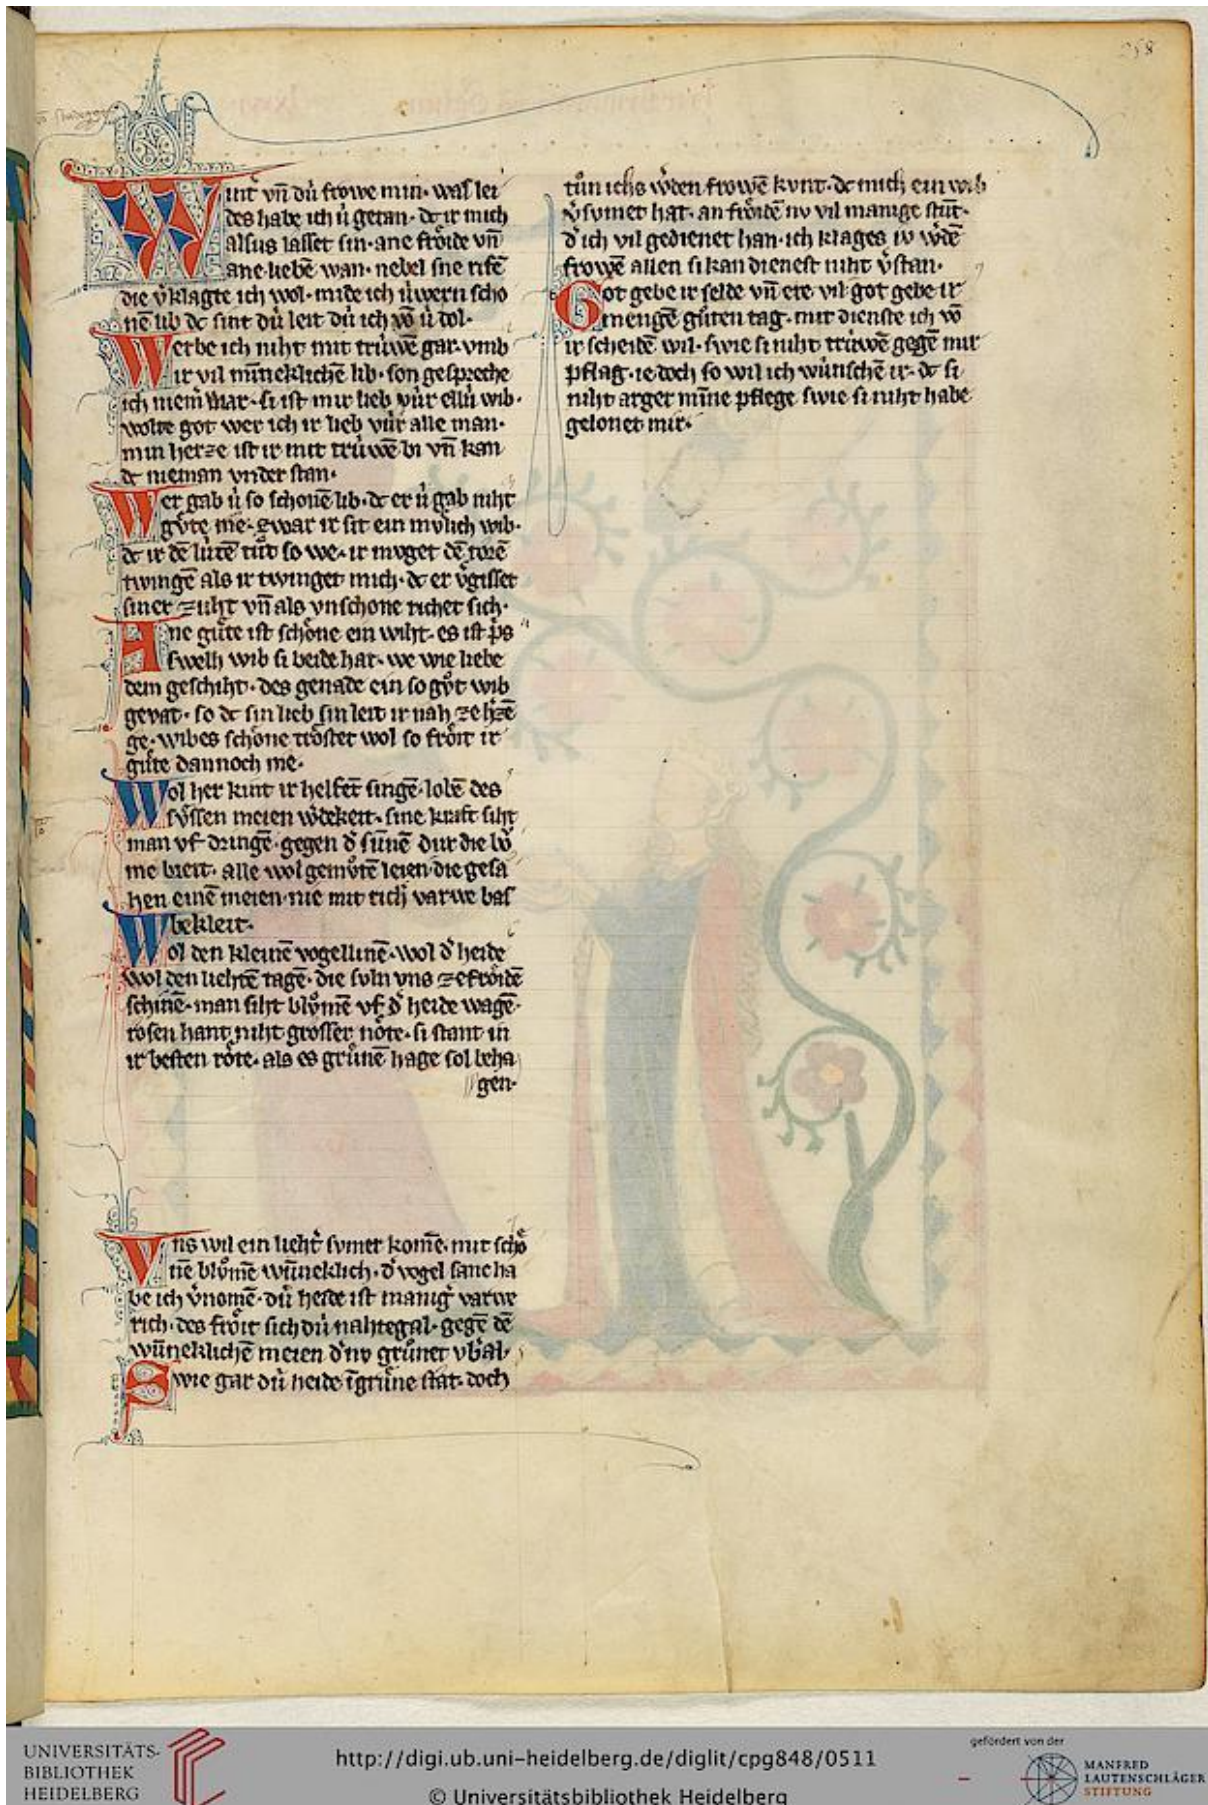 258
Wint̾ vñ dú frowe min· was lei
des habe ich ú getan· dc ir mich
alsus lasset sin· ane froͤide vñ
ane liebē wan· nebel sne rifē
die v̾klagte ich wol· mide ich úwern scho
nē lib dc sint dú leit dú ich vō ú dol·
Werbe ich niht mit trúwē gar· vmb
ir vil mīneklichē lib· son gespreche
ich niem̄ war· si ist mir lieb vúr ellú wib·
wolte got wer ich ir lieb vúr alle man·
min herze ist ir mit trúwē bi vñ kan
dc nieman vnder stan·
Wer gab ú so schonē lib· dc er ú gab niht
guͤte me· zwar ir sit ein mvͤlich wib·
dc ir dē lútē tuͦt so we· ir mvget dē torē
twingē als ir twinget mich· dc er v̾gisset
siner zuht vñ als vnschone richet sich·
Ane guͤte ist schoͤne ein wiht· es ist p̾s
swelh wib si beide hat· we wie liebe
dem geschiht· des genade ein so gvͦt wib
gevat· so dc sin lieb sin leit ir nah ze h̾zē
ge· wibes schoͤne troͤstet wol so froͤit ir
guͤte dannoch me·
Wol her kint ir helfēt singē· lobē des
svͤssen meien w̾dekeit· sine kraft siht
man vf dringē· gegen d̾ sunē dur die boͮ
me breit· alle wol gemvͦtē leien· die gesa
hen einē meien· nie mit rich̾ varwe bas
bekleit·
Wol den kleinē vogellinē· wol d̾ heide
wol den liehtē tagē· die suln vns ze froͤidē
schinē· man siht blvͦmē vf d̾ heide wagē·
rosen hant niht grosser noͤte· si stant in
ir besten roͤte· als es gruͤnē hage sol beha
gen·
Vns wil ein lieht̾ svmer komē· mit schoͤ
nē blvͦmē wūneklich· d̾ vogel sanc ha
be ich v̾nomē· dú heide ist manig̾ varwe
rich· des froͤit sich dú nahtegal· gegē dē
wūneklichē meien d̾ nv gruͤnet vb̾al·
Swie gar dú heide ī gruͤne stat· doch
tuͦn ichs w̾den frowē kvnt· dc mich ein wib
v̾svmet hat· an froͤidē nv vil manige stūt·
d̾ ich vil gedienet han· ich klages iv w̾dē
frowē allen si kan dienest niht v̾stan·
Got gebe ir selde vñ ere vil got gebe ir
mengē guͦten tag· mit dienste ich vō
ir scheidē wil· swie si niht trúwē gegē mir
pflag· ie doch so wil ich wúnschē ir· dc si
niht arger mīne pflege swie si niht habe
gelonet mir·
UNIVERSITÄTS-
BIBLIOTHEK
HEIDELBERG
http://digi.ub.uni-heidelberg.de/diglit/cpg848/0511
© Universitätsbibliothek Heidelberg
gefördert von der
MANFRED
LAUTENSCHLÄGER
STIFTUNG